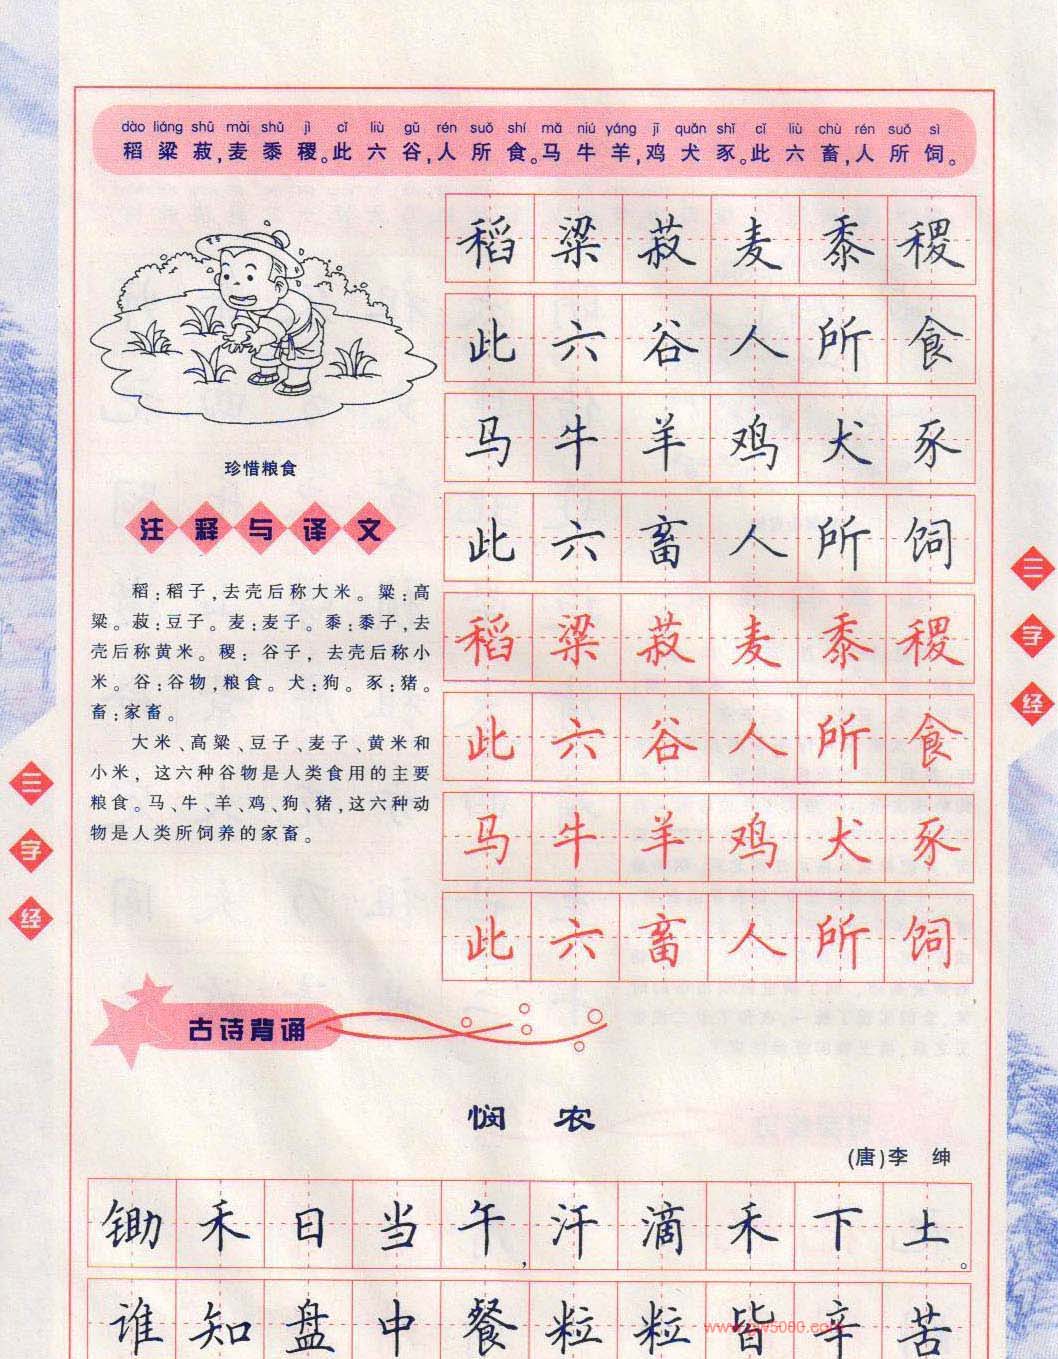 dào liáng shū mài shǔ jì cǐ liù gǔ rén suǒ shí mǎ niú yáng jī quǎn shǐ cǐ liù chù rén suǒ sì
稻粱菽,麦黍稷。此六谷,人所食。马牛羊,鸡犬豕。此六畜,人所饲。
稻粱菽麦黍稷
此六谷人所食
马牛羊鸡犬豕
此六畜人所饲
稻粱菽麦黍稷
此六谷人所食
马牛羊鸡犬豕
此六畜人所饲
珍惜粮食
注释与译文
稻:稻子,去壳后称大米。粱:高
粱。菽:豆子。麦:麦子。黍:黍子,去
壳后称黄米。稷:谷子,去壳后称小
米。谷:谷物,粮食。犬:狗。豕:猪。
畜:家畜。
大米、高粱、豆子、麦子、黄米和
小米,这六种谷物是人类食用的主要
粮食。马、牛、羊、鸡、狗、猪,这六种动
物是人类所饲养的家畜。
三字经
三字经
古诗背诵
悯农
(唐)李绅
锄禾日当午,汗滴禾下土。
谁知盘中餐粒粒皆辛苦